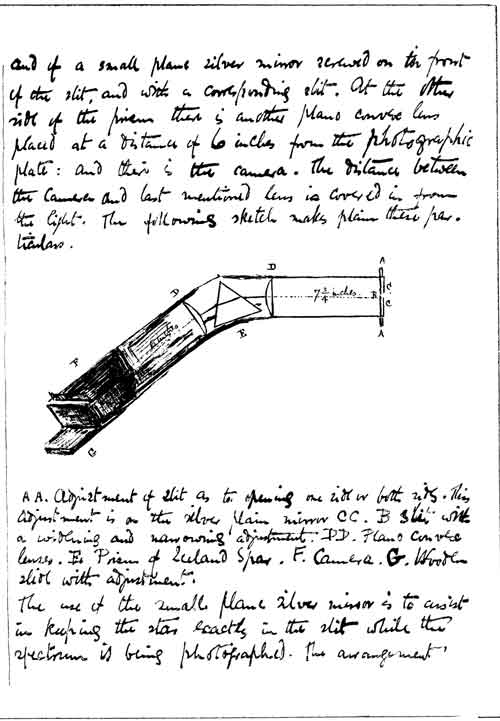 and if a small plane silver mirror screwed on the front
of the slit, and with a corresponding slit. At the other
side of the prism there is another plano convex lens
placed at a distance of 6 inches from the photographic
plate: and there is the camera. The distance between
the Camera and last mentioned lens is covered in from
the light. The following sketch makes plain these par-
ticulars.
A
D
D
7 3/4 inches
B
C
C
E
A
6 inches
F
G
AA. Adjustment of slit as to opening one side or both sides. This
adjustment is on the silver plain mirror CC. B Slit with
a widening and narrowing adjustment. DD. Plano convex
lenses. E. Prism of Iceland Spar. F. Camera. G. Wooden
slide with adjustment.
The use of the small plane silver mirror is to assist
in keeping the star exactly in the slit while the
spectrum is being photographed. The arrangement